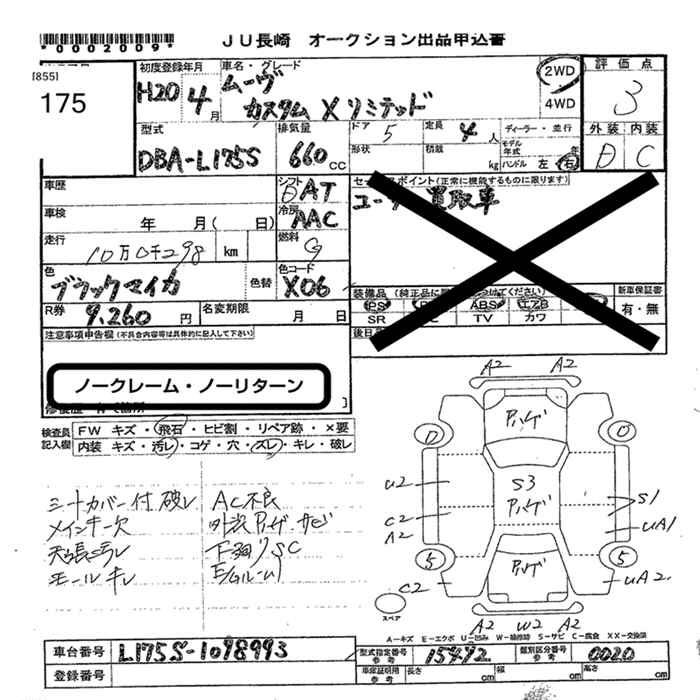 *0002009*
JU長崎 オークション出品申込書
[855]
175
初度登録年月
H20 4月
車名・グレード
ムーヴ
カスタム Xリミテッド
2WD
4WD
評価点
3
外装 内装
D C
型式
DBA-L175S
排気量
660 CC
ドア 5
定員 4人
形状
積載 kg
ディーラー・並行
モデル年式 年
ハンドル 左・右
車歴
シフト
DAT
セールスポイント(正常に機能するものに限ります)
車検 年 月( 日)
冷房
AAC
走行 10万0千298 km
燃料
G
色
ブラックマイカ
色替
色コード
X06
装備品
PS ABS エアB
SR TV カワ
新車保証書
有・無
R券
9,260円
名変期限 月 日
後日
注意事項申告欄(不具合内容等は具体的に記入して下さい)
ノークレーム・ノーリターン
検査員記入欄
FW キズ・飛石・ヒビ割・リペア跡・×要
内装 キズ・汚レ・コゲ・穴・ズレ・キレ・破レ
シートカバー付 破レ
メインキー欠
天張汚レ
モールキレ
AC不良
下廻りSC
A2 A2
アハゲ
D D
U2
S3
アハゲ
C2
A2
S1
UA1
5 5
アハゲ
C2
UA2
スペア
A2 W2 A2
A-キズ E-エクボ U-凹み W-補修跡 S-サビ C-腐食 XX-交換済
車台番号 L175S-1098993
型式指定番号参考 15492
類別区分番号参考 0020
登録番号
車庫証明用参考 長さ cm 幅 cm 高さ cm